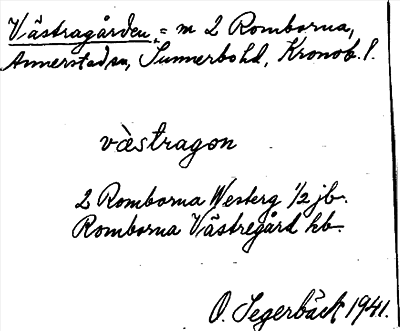 Västragården, = m 2 Romborna,
Annerstads sn, Sunnerbo hd, Kronob. l.
västragon
2 Romborna Westerg 1/2 jb.
Romborna Västregård hb.
O. Segerbäck 1941.